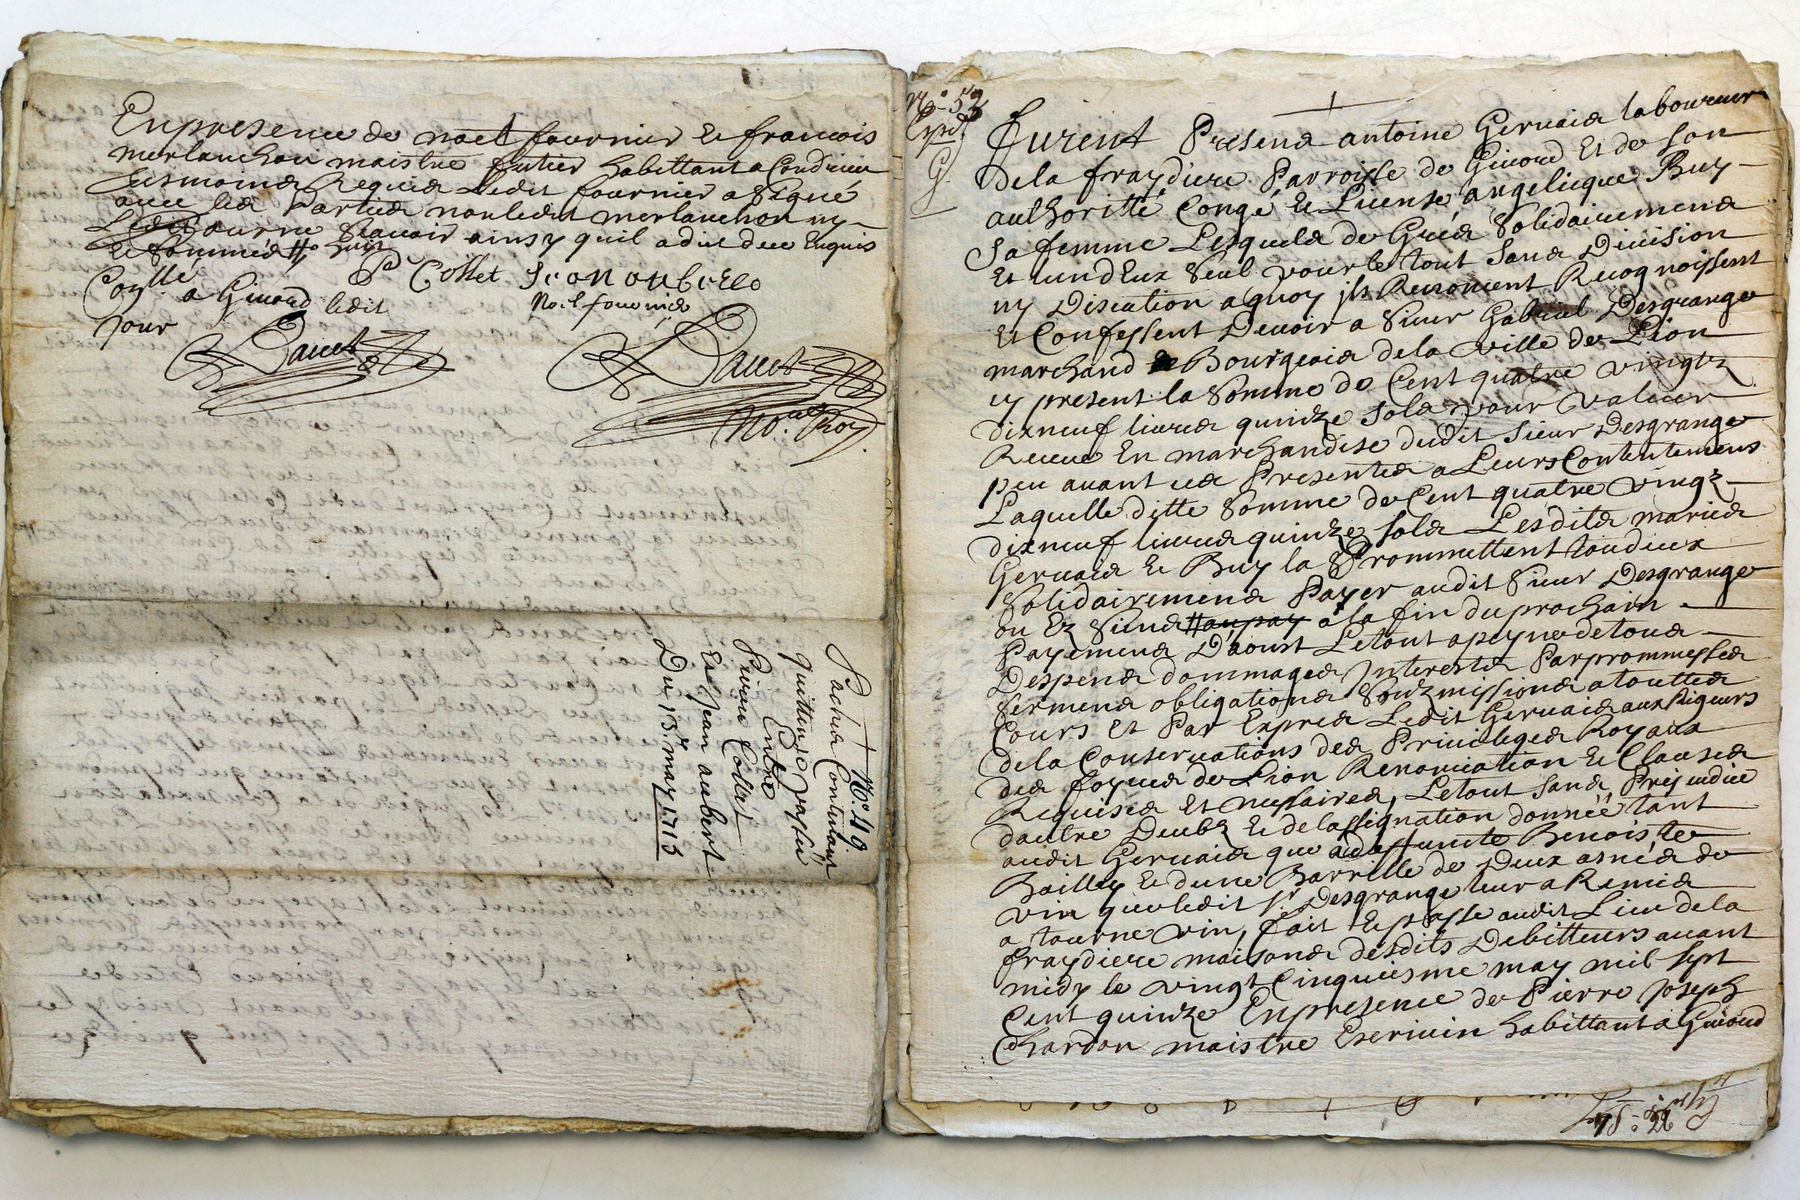 En presence de noel fournier Et francois
merlanchon maistre futier habittant a Condrieu
tesmoins Requis Ledit fournier a Signé
avec les Parties non ledit merlanchon ny
Sçavoir ainsy quil a dit dece Enquis
Et Sommés
Pr Collet Jean oubere
noel fournier
Coyllé
a Givord ledit
jour
Dauet
Dauet
No.re Roy.
Pache Contenant
quittance passée
Entre
Pierre Collet
Et Jean aubert
Du 13.e may 1715
N.o 49.
N.o 52
Expd.
G.
Furent Presens antoine Gervais laboureur
dela fraydiere Parroisse de Givord Et de Son
authoritté Congé Et License angelicque Buy
Sa femme Lesquels de Grés Solidairemens
Et lun dEux Seul pour le tout Sans Division
ny Discution a quoy jls Renoncent Recognoissent
Et Confessent Devoir a Sieur Gabriel Desgrange
marchand Bourgeois dela ville de Lion
cy present la Somme de Cent quatre vingtz
dixneuf livres quinze Sols pour valeur
Receue En marchandise dudit Sieur Desgrange
peu avant ces Presentes a Leurs Contentemens
Laquelle ditte Somme de Cent quatre vingz
dixneuf livres quinze sols Lesdits mariés
Gervais Et Buy la Prommettent tousdeux
Solidairemens Payer audit Sieur Desgrange
ou Ez Siens au pay a la fin du prochain
Payemens D'aoust Le tout a peyne de tous
Despens dommages Interests Par prommesses
Sermens obligations Soubzmissions a touttes
Cours Et Par Expres Ledit Gervais aux Rigeurs
dela Conservations des Privileges Royaux
des foyres de Lion Renonciation Et Clauses
Requises Et nessaires, Le tout Sans Prejudice
dautre Deubz Et de lassignation donnée tant
audit Gervais que a deffunte Benoiste
Bailly Et dune Barrelle de Deux asnées de
vin que ledit Sr. Desgrange leur a Remis
a tourne vin, fait Et passe audit Lieu dela
fraydiere maisons desdits Debitteurs avant
midy le vingt Cinquiesme may mil Sept
Cent quinze En presence de Pierre joseph
Chardon maistre Escrivin habittant a Givord